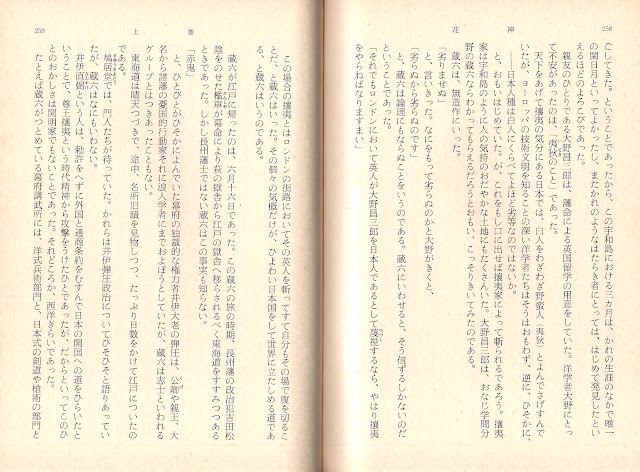 258
花神
ごしてきた。ということであったから、この宇和島における三カ月は、かれの生涯のなかで唯一
の閑日月といってよかったし、またかれのようなはたらき者にとっては、はじめて発見したとい
えるほどのよろこびであった。
親友のひとりである大野昌三郎は、藩命による英国留学の用意をしていた。洋学者大野にとっ
て不安があったのは、「夷狄のこと」であった。
天下をあげて攘夷の気分にある日本では、白人をわざわざ野蛮人（夷狄）とよんでさげすんで
いたが、ヨーロッパの技術文明を知ることの深い洋学者たちはそうはおもわず、逆に、ひそかに、
――日本人種は白人にくらべてよほど劣等なのではないか。
と、おもいはじめていた。が、これをもし口に出せば攘夷家によって斬られるであろう。攘夷
家は宇和島のように人の気持のおだやかな土地にもたくさんいた。大野昌三郎は、おなじ学問分
野の蔵六ならわかってもらえるだろうとおもい、こっそりきいてみたのである。
蔵六は、無造作にいった。
「劣りませぬ」
と、言いきった。なにをもって劣らぬのかと大野がきくと、
「劣らぬから劣らぬのです」
と、蔵六は論理にもならぬことをいうのである。蔵六にいわせると、そう信ずるしかないのだ
ということであった。
「それでもロンドンにおいて英人が大野昌三郎を日本人であるとして蔑視するなら、やはり攘夷
をやらねばなりますまい」
259
上巻
この場合の攘夷とはロンドンの街路においてその英人を斬ってすて自分もその場で腹を切るこ
とだ、と蔵六はいった。その個々の気概だけが、ひよわい日本国をして世界に立たしめる道であ
る、と蔵六はいうのである。
蔵六が江戸に帰ったのは、六月十六日であった。この蔵六の旅の時期、長州藩の政治犯吉田松
陰をのせた檻車が幕命により萩の獄舎から江戸の獄舎へ移されるべく東海道をすすみつつある
ときであった。しかし長州藩士ではない蔵六はこの事実も知らない。
「赤鬼」
と、ひとびとがひそかによんでいた幕府の独裁的な権力者井伊大老の弾圧は、公卿や親王、大
名から諸藩の憂国的行動家それに浪人学者にまでおよぼうとしていたが、蔵六は志士といわれる
グループとはつきあったこともない。
東海道は晴天つづきで、途中、名所旧蹟を見物しつつ、たっぷり日数をかけて江戸についたの
である。
鳩居堂では、門人たちが待っていた。かれらは井伊弾圧政治についてひそひそと語りあってい
たが、蔵六はなにもいわない。
井伊直弼という人は、勅許をへずに外国と通商条約をむすんで日本の開国への道をひらいたと
いうことで、尊王攘夷という時代精神から攻撃をうけたひとであったが、だからといってこのひ
とのおかしさは開明家でもないことであった。それどころか、西洋ぎらいであった。
たとえば蔵六がつとめている幕府講武所には、洋式兵術部門と、日本式の剣道や槍術の部門と